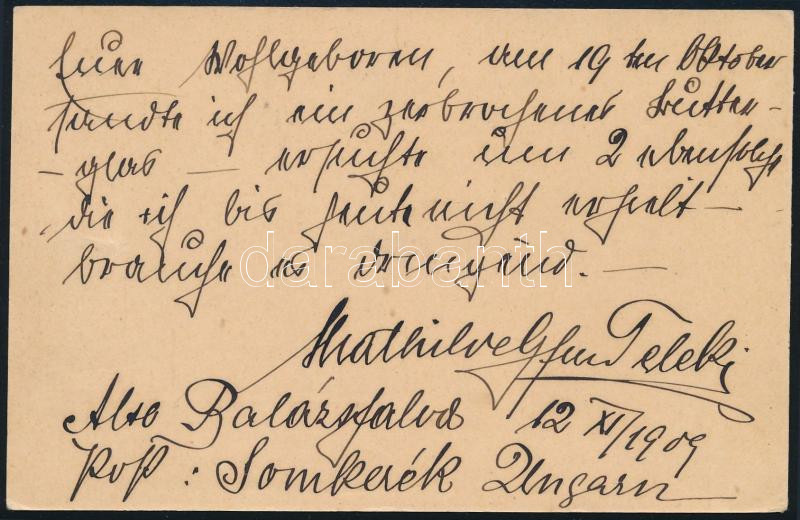 Euer Wohlgeboren, am 19ten Oktober
sandte ich ein zerbrochenes Butter-
-glas — ersuchte um 2 ebensolche
die ich bis heute nicht erhielt —
brauche es dringend. —
darabanth
Mathilde Gfin Teleki
Alsó Balázsfalva 12 XI/1909
Post: Somkerék Ungarn